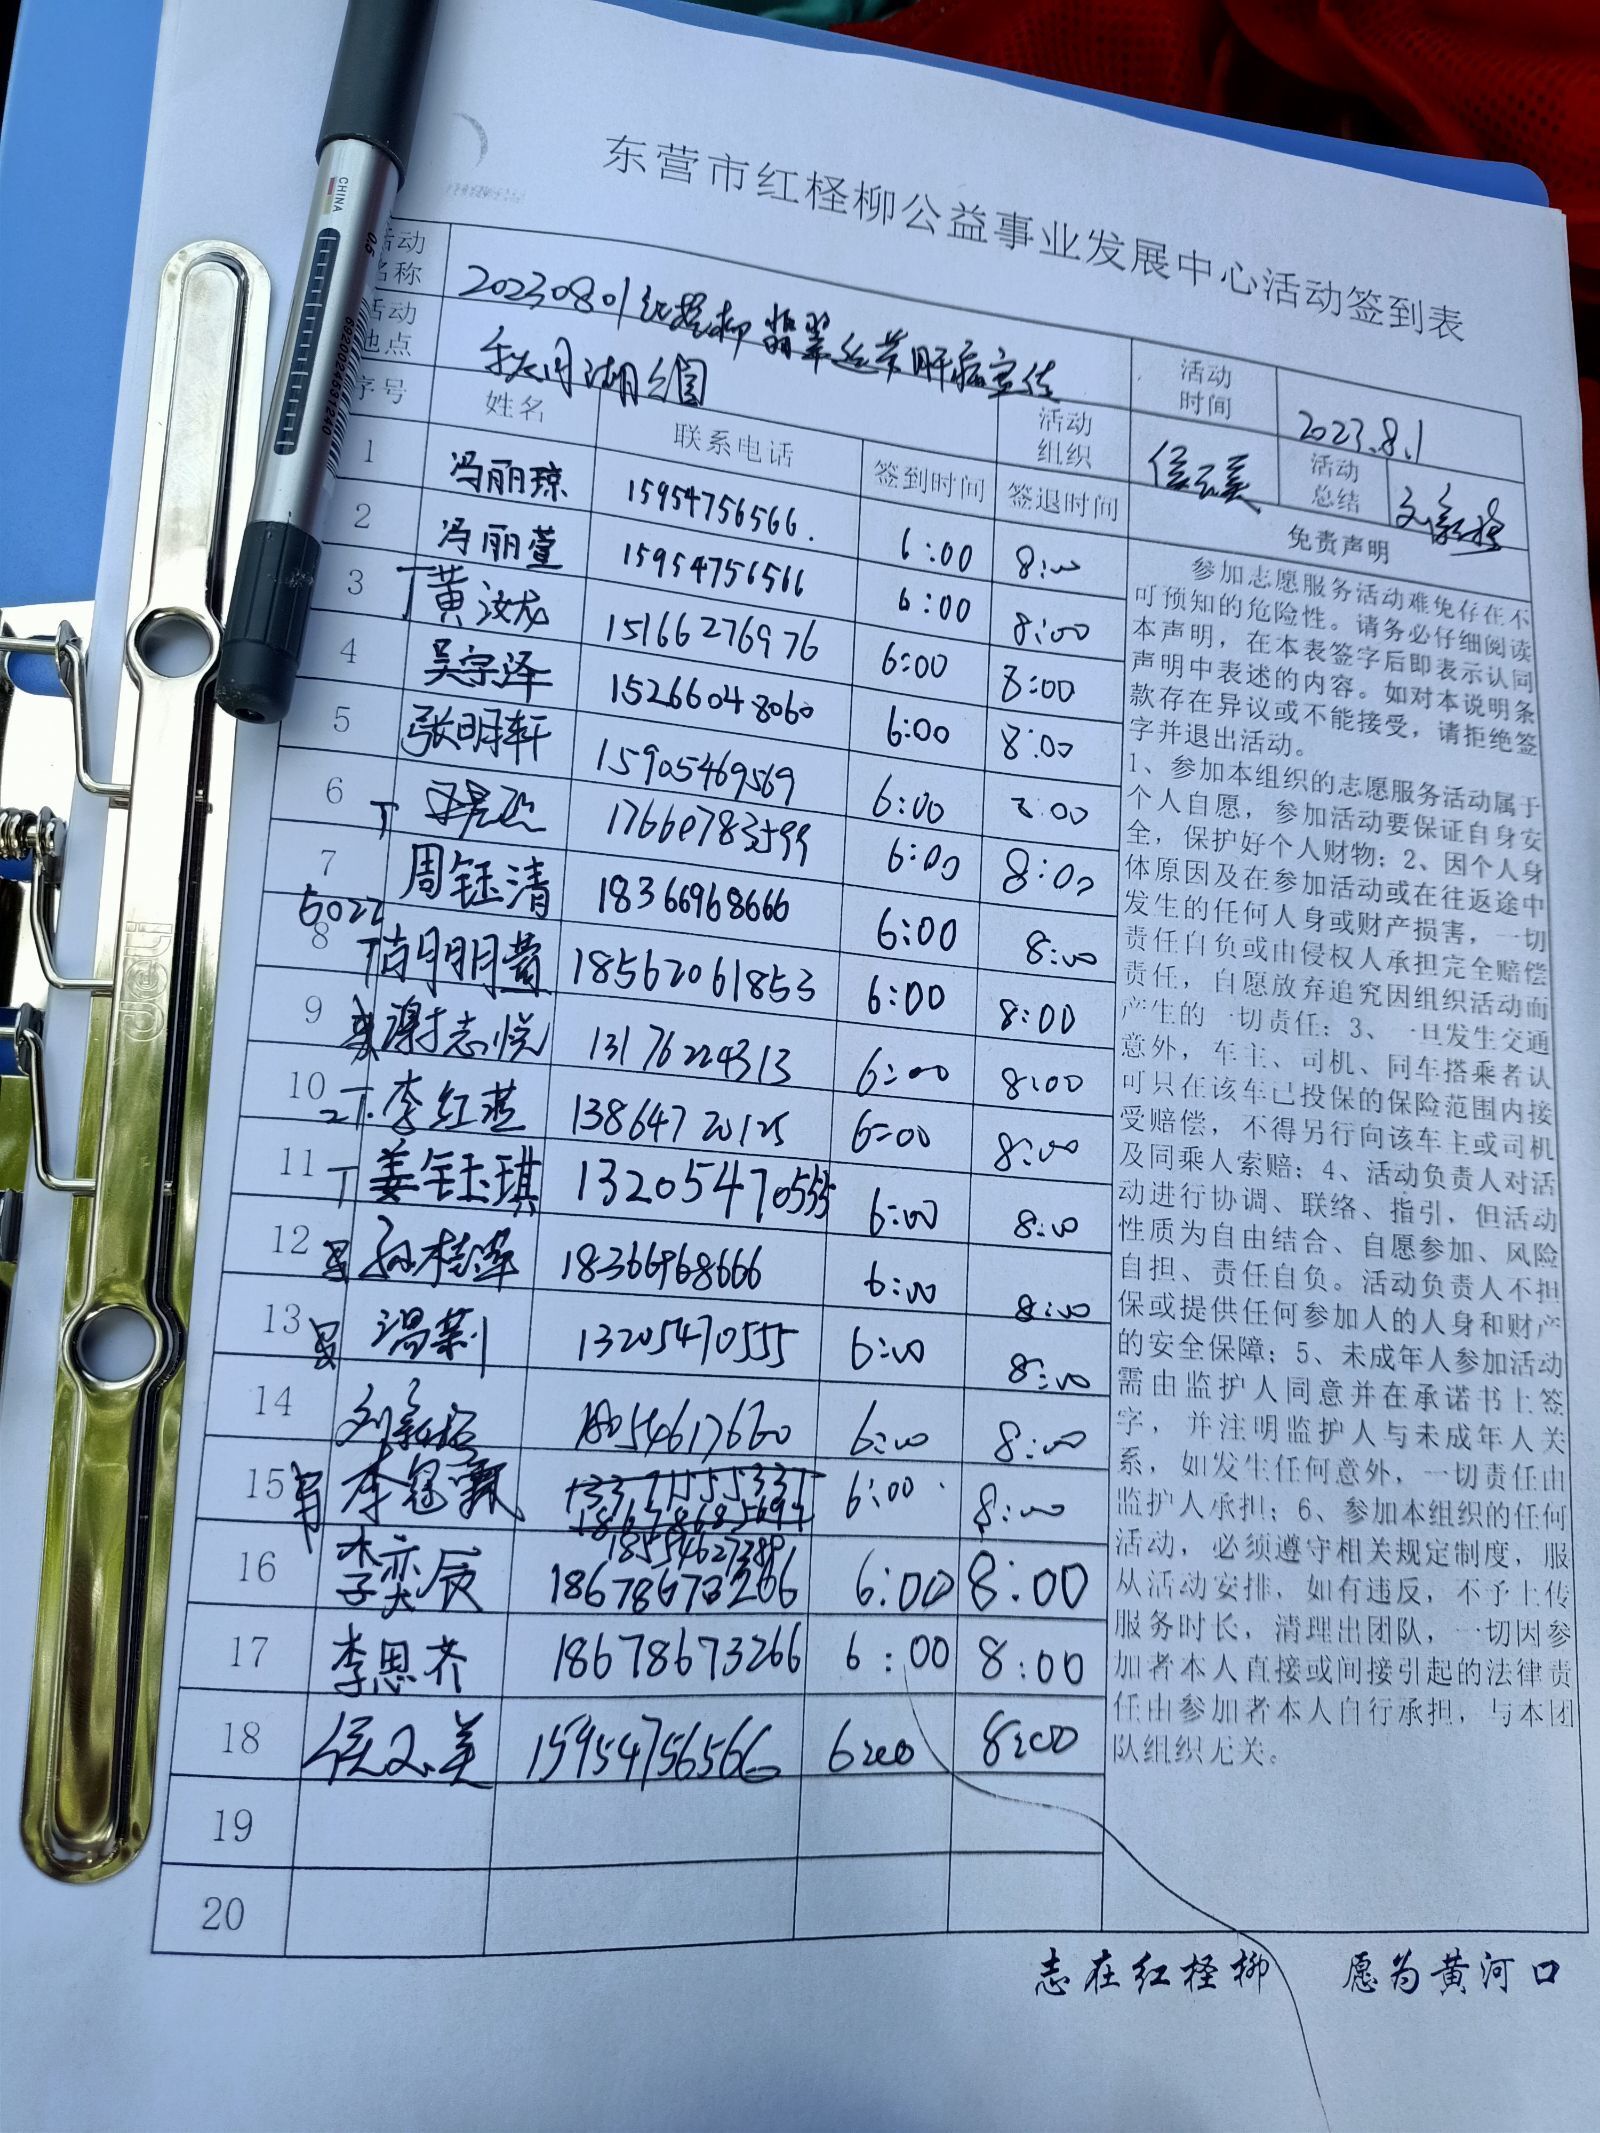 东营市红柽柳公益事业发展中心活动签到表
活动名称 20230801红柽柳翡翠丝带肝病宣传 活动时间 2023.8.1
活动地点 秋月湖公园 活动组织 活动总结 刘新格
序号 姓名 联系电话 签到时间 签退时间 免责声明
1 冯丽琼 15954756566. 6:00 8:00
2 冯丽萱 15954756566 6:00 8:00
3 T黄汶龙 15166276976 6:00 8:00
4 吴宗泽 15266048060 6:00 8:00
5 张明轩 15905469569 6:00 8:00
6 T 17660783599 6:00 8:00
7 周钰清 18366968666 6:00 8:00
8 T肖明萱 18562061853 6:00 8:00
9 谢志悦 13176224313 6:00 8:00
10 李红莲 13864720125 6:00 8:00
11 T 姜钰琪 13205470555 6:00 8:00
12 孙桂萍 18366968666 6:00 8:00
13 温莉 13205470555 6:00 8:00
14 刘新格 18054617660 6:00 8:00
15 李冠霖 6:00 8:00
16 李奕辰 18678673266 6:00 8:00
17 李思齐 18678673266 6:00 8:00
18 15954756566 6:00 8:00
19
20
参加志愿服务活动难免存在不
可预知的危险性。请务必仔细阅读
本声明，在本表签字后即表示认同
声明中表述的内容。如对本说明条
款存在异议或不能接受，请拒绝签
字并退出活动。
1、参加本组织的志愿服务活动属于
个人自愿，参加活动要保证自身安
全，保护好个人财物；2、因个人身
体原因及在参加活动或在往返途中
发生的任何人身或财产损害，一切
责任自负或由侵权人承担完全赔偿
责任，自愿放弃追究因组织活动而
产生的一切责任；3、一旦发生交通
意外，车主、司机、同车搭乘者认
可只在该车已投保的保险范围内接
受赔偿，不得另行向该车主或司机
及同乘人索赔；4、活动负责人对活
动进行协调、联络、指引，但活动
性质为自由结合、自愿参加、风险
自担、责任自负。活动负责人不担
保或提供任何参加人的人身和财产
的安全保障；5、未成年人参加活动
需由监护人同意并在承诺书上签
字，并注明监护人与未成年人关
系，如发生任何意外，一切责任由
监护人承担；6、参加本组织的任何
活动，必须遵守相关规定制度，服
从活动安排，如有违反，不予上传
服务时长，清理出团队，一切因参
加者本人直接或间接引起的法律责
任由参加者本人自行承担，与本团
队组织无关。
志在红柽柳 愿为黄河口
CHINA
0.5
6920024531240
deli